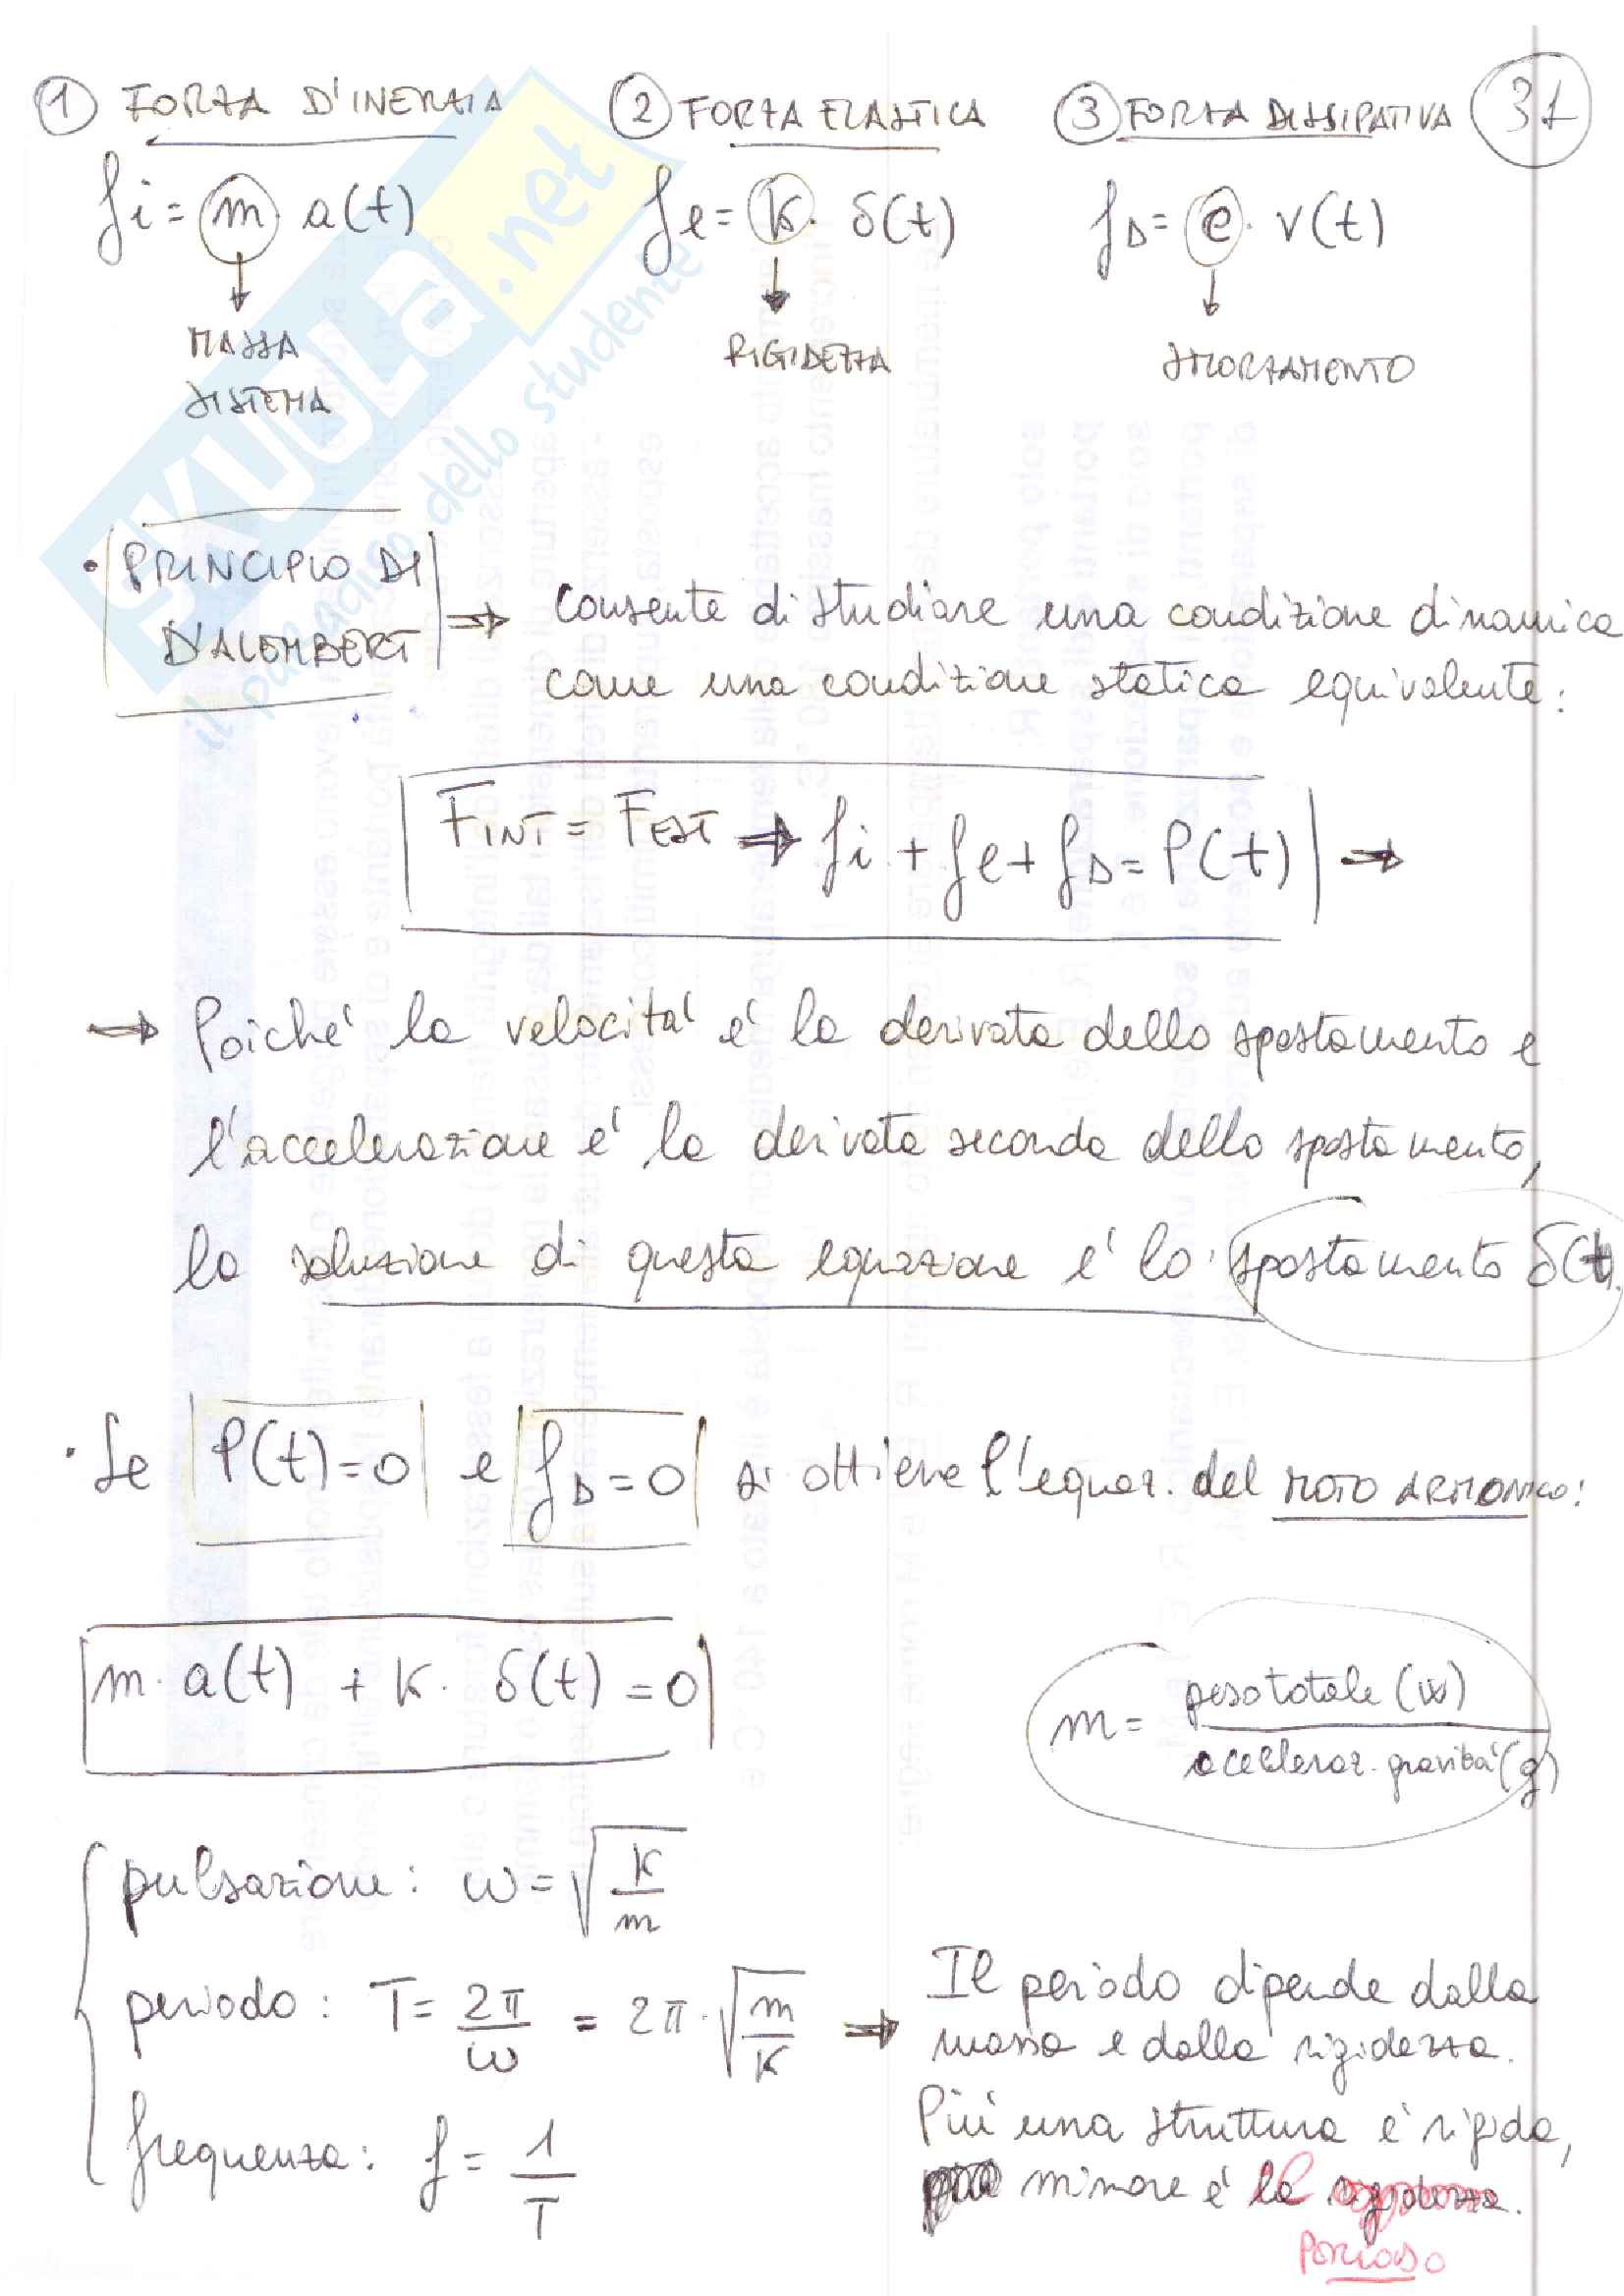 ① FORZA D'INERZIA ② FORZA ELASTICA ③ FORZA DISSIPATIVA 31
fi = m · a(t) fe = K · δ(t) fD = c · v(t)
MASSA SISTEMA RIGIDEZZA SMORZAMENTO
SKUOLA.net
il paradiso dello studente
• PRINCIPIO DI D'ALEMBERT ⇒ consente di studiare una condizione dinamica
come una condizione statica equivalente:
FINT = FEST ⇒ fi + fe + fD = P(t) ⇒
⇒ Poiché la velocità é la derivata dello spostamento e
l'accelerazione é la derivata seconda dello spostamento,
la soluzione di questa equazione é lo spostamento δ(t).
• Se P(t) = 0 e fD = 0 si ottiene l'equaz. del MOTO ARMONICO:
m · a(t) + K · δ(t) = 0
m = peso totale (W) / acceleraz. gravità (g)
pulsazione: ω = √(K/m)
periodo: T = 2π/ω = 2π · √(m/K) ⇒ Il periodo dipende dalla
massa e dalla rigidezza.
Più una struttura é rigida,
minore é il
PERIODO
frequenza: f = 1/T